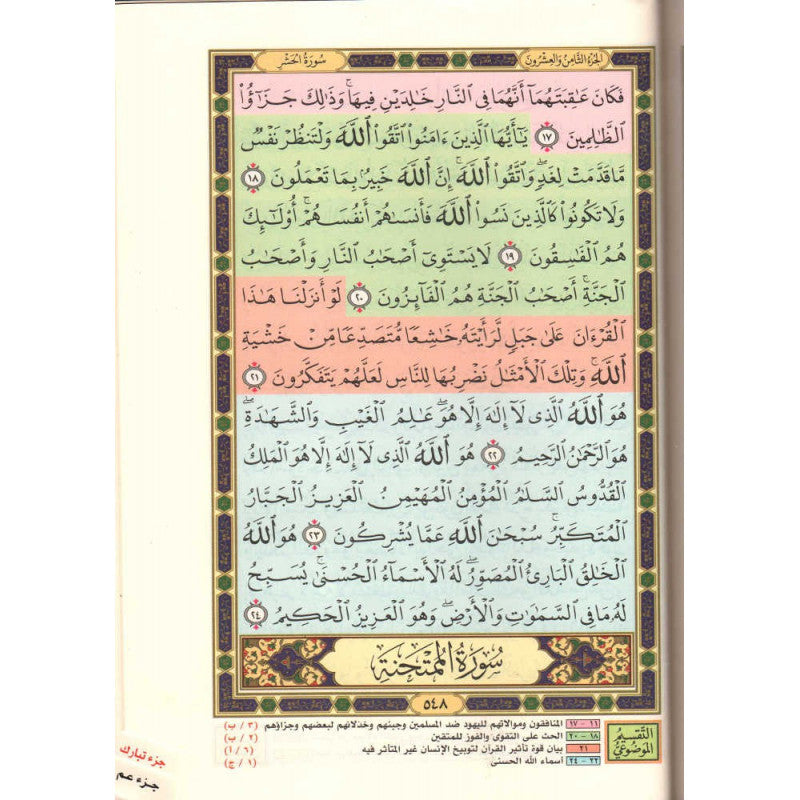 الجزء الثامن والعشرون
سورة الحشر
فَكَانَ عَٰقِبَتَهُمَآ أَنَّهُمَا فِي ٱلنَّارِ خَٰلِدَيْنِ فِيهَاۚ وَذَٰلِكَ جَزَٰٓؤُا۟
ٱلظَّٰلِمِينَ ١٧ يَٰٓأَيُّهَا ٱلَّذِينَ ءَامَنُوا۟ ٱتَّقُوا۟ ٱللَّهَ وَلْتَنظُرْ نَفْسٌ
مَّا قَدَّمَتْ لِغَدٍۖ وَٱتَّقُوا۟ ٱللَّهَۚ إِنَّ ٱللَّهَ خَبِيرٌۢ بِمَا تَعْمَلُونَ ١٨
وَلَا تَكُونُوا۟ كَٱلَّذِينَ نَسُوا۟ ٱللَّهَ فَأَنسَىٰهُمْ أَنفُسَهُمْۚ أُو۟لَٰٓئِكَ
هُمُ ٱلْفَٰسِقُونَ ١٩ لَا يَسْتَوِىٓ أَصْحَٰبُ ٱلنَّارِ وَأَصْحَٰبُ
ٱلْجَنَّةِۚ أَصْحَٰبُ ٱلْجَنَّةِ هُمُ ٱلْفَآئِزُونَ ٢٠ لَوْ أَنزَلْنَا هَٰذَا
ٱلْقُرْءَانَ عَلَىٰ جَبَلٍ لَّرَأَيْتَهُۥ خَٰشِعًا مُّتَصَدِّعًا مِّنْ خَشْيَةِ
ٱللَّهِۚ وَتِلْكَ ٱلْأَمْثَٰلُ نَضْرِبُهَا لِلنَّاسِ لَعَلَّهُمْ يَتَفَكَّرُونَ ٢١
هُوَ ٱللَّهُ ٱلَّذِى لَآ إِلَٰهَ إِلَّا هُوَۖ عَٰلِمُ ٱلْغَيْبِ وَٱلشَّهَٰدَةِۖ
هُوَ ٱلرَّحْمَٰنُ ٱلرَّحِيمُ ٢٢ هُوَ ٱللَّهُ ٱلَّذِى لَآ إِلَٰهَ إِلَّا هُوَ ٱلْمَلِكُ
ٱلْقُدُّوسُ ٱلسَّلَٰمُ ٱلْمُؤْمِنُ ٱلْمُهَيْمِنُ ٱلْعَزِيزُ ٱلْجَبَّارُ
ٱلْمُتَكَبِّرُۚ سُبْحَٰنَ ٱللَّهِ عَمَّا يُشْرِكُونَ ٢٣ هُوَ ٱللَّهُ
ٱلْخَٰلِقُ ٱلْبَارِئُ ٱلْمُصَوِّرُۖ لَهُ ٱلْأَسْمَآءُ ٱلْحُسْنَىٰۚ يُسَبِّحُ
لَهُۥ مَا فِي ٱلسَّمَٰوَٰتِ وَٱلْأَرْضِۖ وَهُوَ ٱلْعَزِيزُ ٱلْحَكِيمُ ٢٤
سُورَةُ المُمْتَحنَةِ
٥٤٨
التقسيم الموضوعي
١١ - ١٧ المنافقون وموالاتهم لليهود ضد المسلمين وجبنهم وخذلانهم لبعضهم وجزاؤهم (٣ / ب)
١٨ - ٢٠ الحث على التقوى والفوز للمتقين (٢ / ب)
٢١ بيان قوة تأثير القرآن لتوبيخ الإنسان غير المتأثر فيه (٦ / أ)
٢٢ - ٢٤ أسماء الله الحسنى (١ / ج)
جزء تبارك
جزء عم